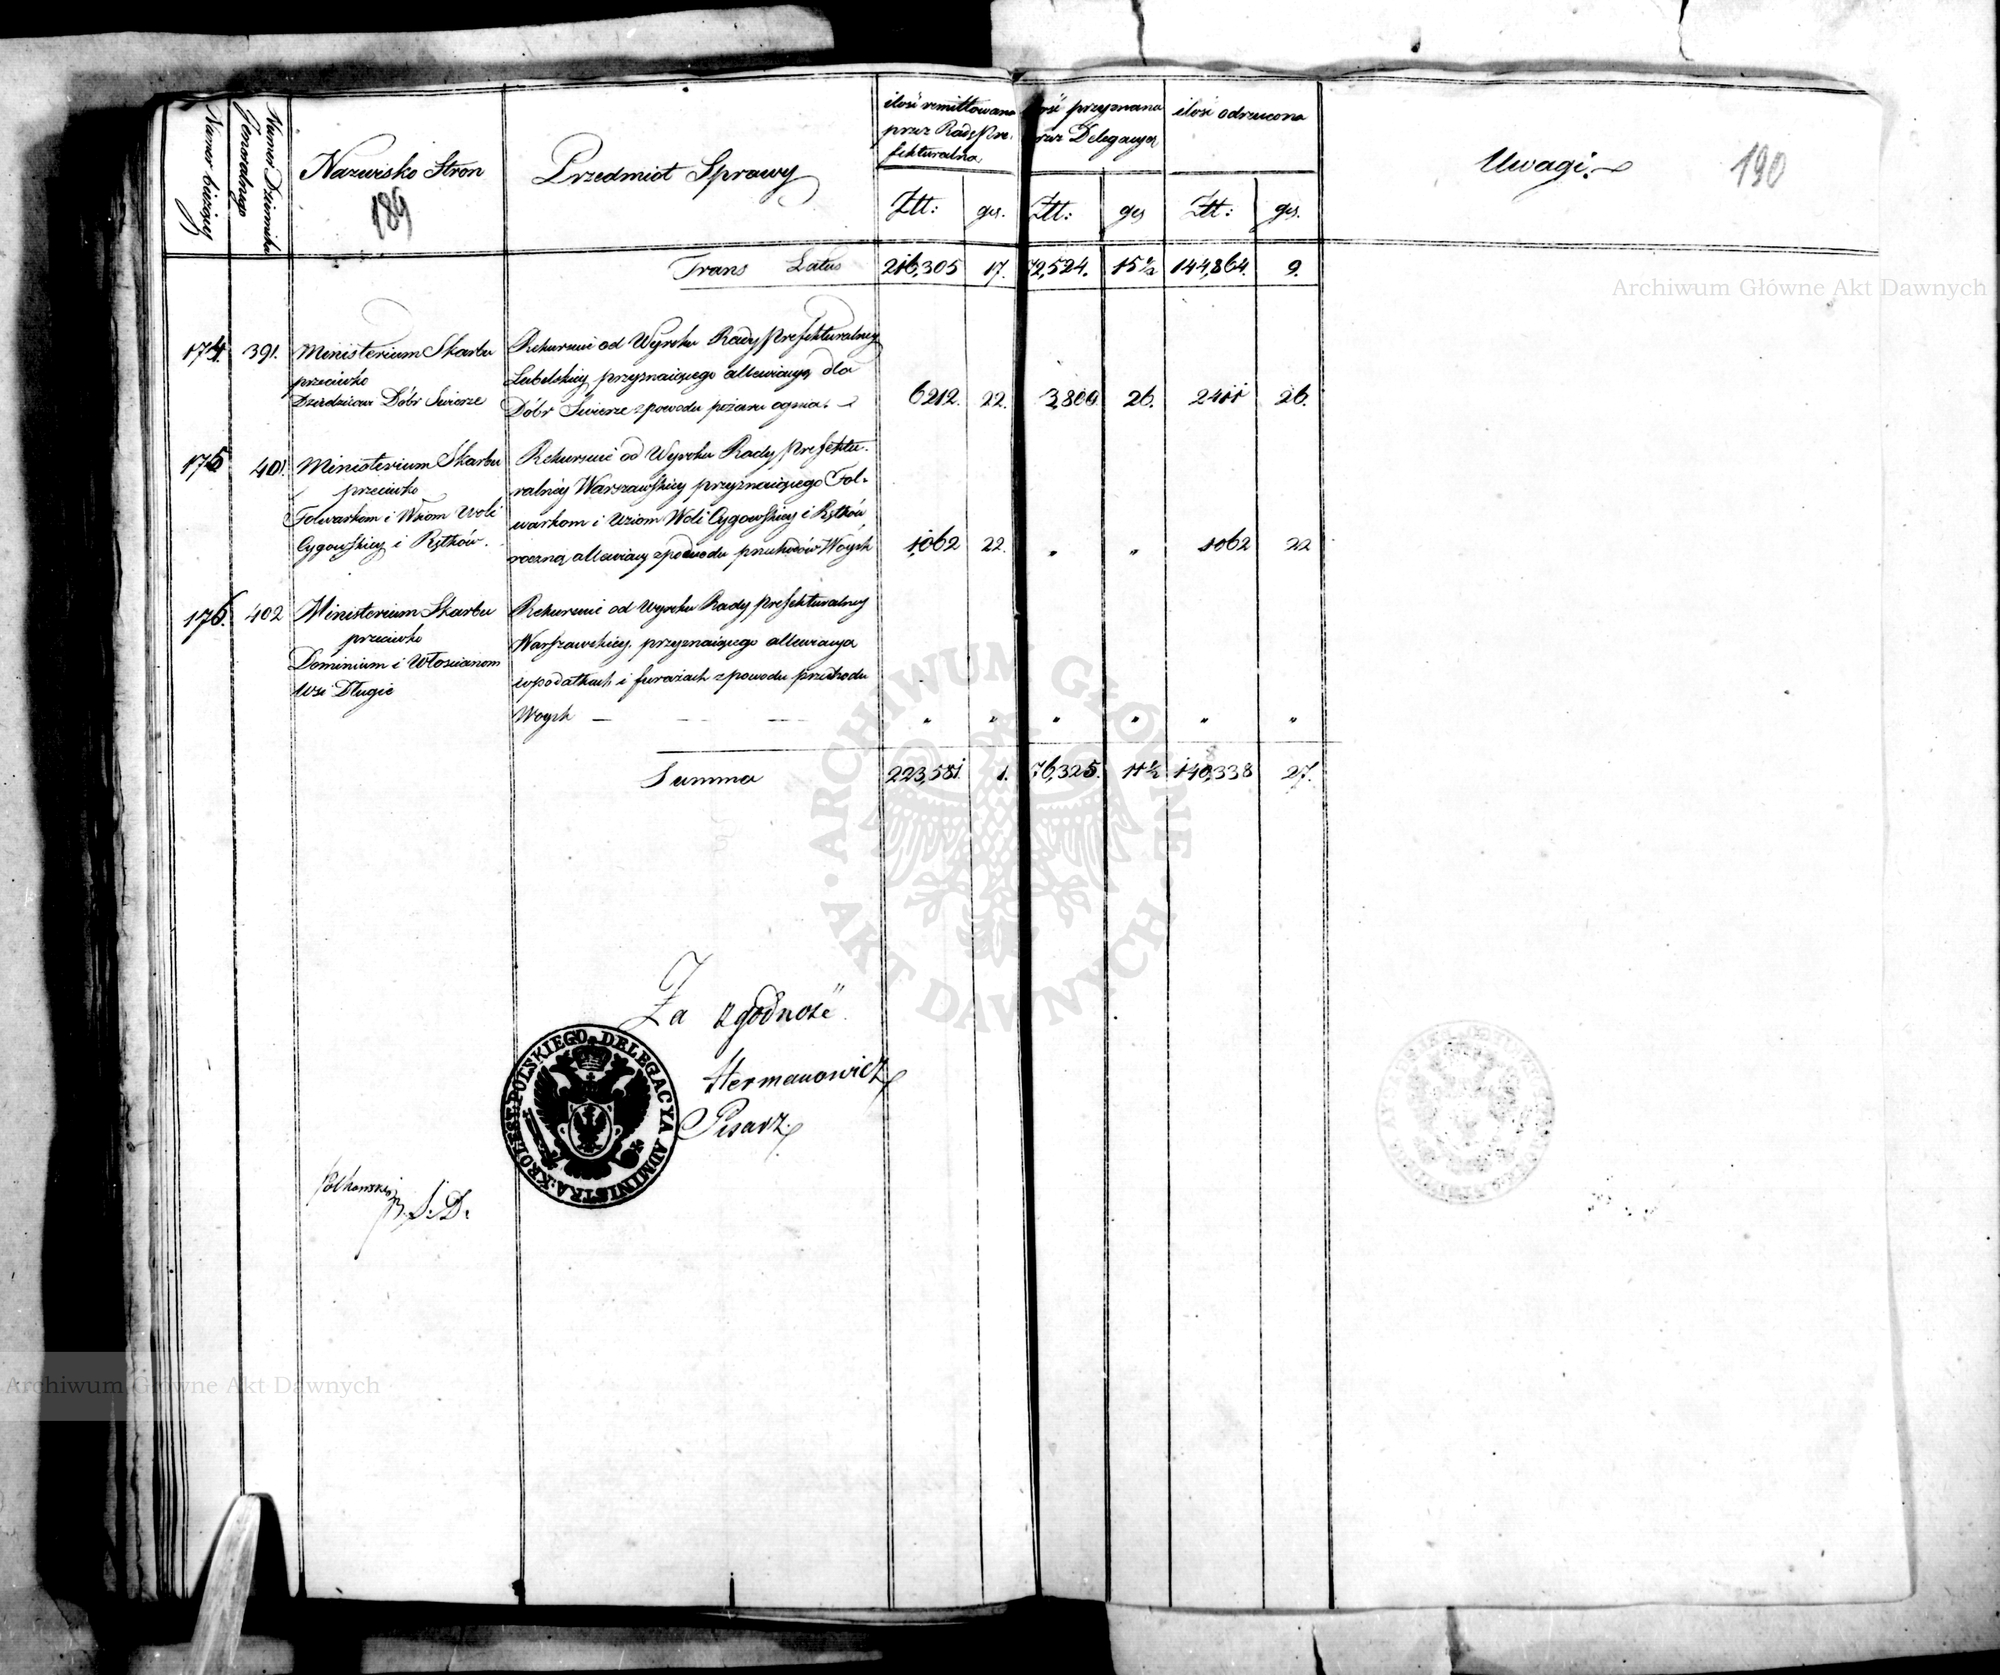 Numer bieżący
Numer Dziennika
Generealnego
Nazwisko Stron
189
Przedmiot Sprawy
ilość remittowana
przez Radę Pre-
fekturalną
Złt: gr.
ość przyznana
rzez Delegacyą
Złt: gr
ilość odrzucona
Złt: gr.
Uwagi.
190
Trans Latus 216,305 17. 72,524. 15½ 144,864. 9.
174. 391. Ministerium Skarbu
przeciwko
Dziedzicowi Dóbr Świerże
Rekursuie od Wyroku Rady Prefekturalney
Lubelskiey przyznaiącego allewiacyą dla
Dóbr Świerże z powodu pożaru ognia.
6212. 22. 3,800 26. 2411 26.
175 401. Ministerium Skarbu
przeciwko
Folwarkom i Wsiom Woli
Cygowskiey i Rętków.
Rekursuie od Wyroku Rady Prefektu-
ralnéy Warszawskiey przyznaiącego Fol-
warkom i Wsiom Woli Cygowskiey i Rętków
roczną allewiacyą z powodu pruchodów Woysk
1,062 22. " " 1062 22
176. 402 Ministerium Skarbu
przeciwko
Dominium i Włościanom
Wsi Długie
Rekursuie od Wyroku Rady Prefekturalney
Warszawskiey przyznaiącego allewiacyą
w podatkach i furażach z powodu przechodu
Woysk — — —
" " " " " "
Summa 223,581. 1. 76,325. 11½ 140,338 27.
Za zgodność
Hermanowicz
Pisarz.
S. D.
KROLEST: POLSKIEGO DELEGACYA ADMINISTRA:
Archiwum Główne Akt Dawnych
Archiwum Główne Akt Dawnych
ARCHIWUM GŁÓWNE
AKT DAWNYCH